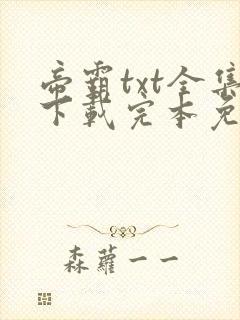 帝霸txt全集
下载完本免
森蘿一一